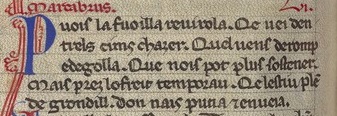 Marcabrus.
Puois la fuoilla revirola. Qe vei den
trels cims chazer. Qel vens deromp
e degolla. Que nois pot plus sostener.
Mais prez lo freit temporau. Qe lestiu ple
de gandill. don nais putia et enueia.